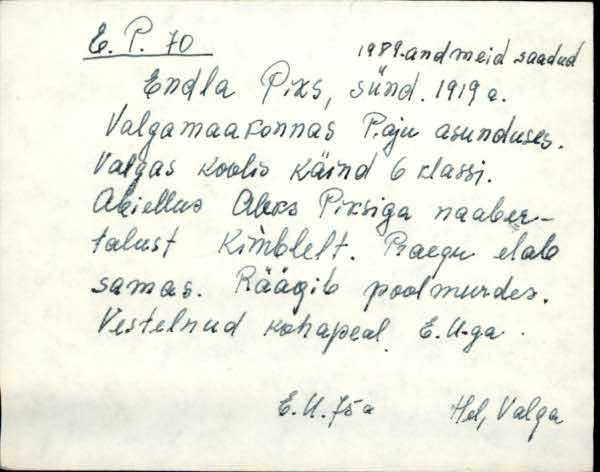 E. P. 70
1989. andmeid saadud
Endla Piks, sünd. 1919 a.
Valgamaakonnas Paju asunduses.
Valgas koolis käind 6 klassi.
Abiellus Aleks Piksiga naaber-
talust Kimblelt. Praegu elab
samas. Räägib poolmurdes.
Vestelnud kohapeal E. U-ga.
E. U. 75 a Hel, Valga